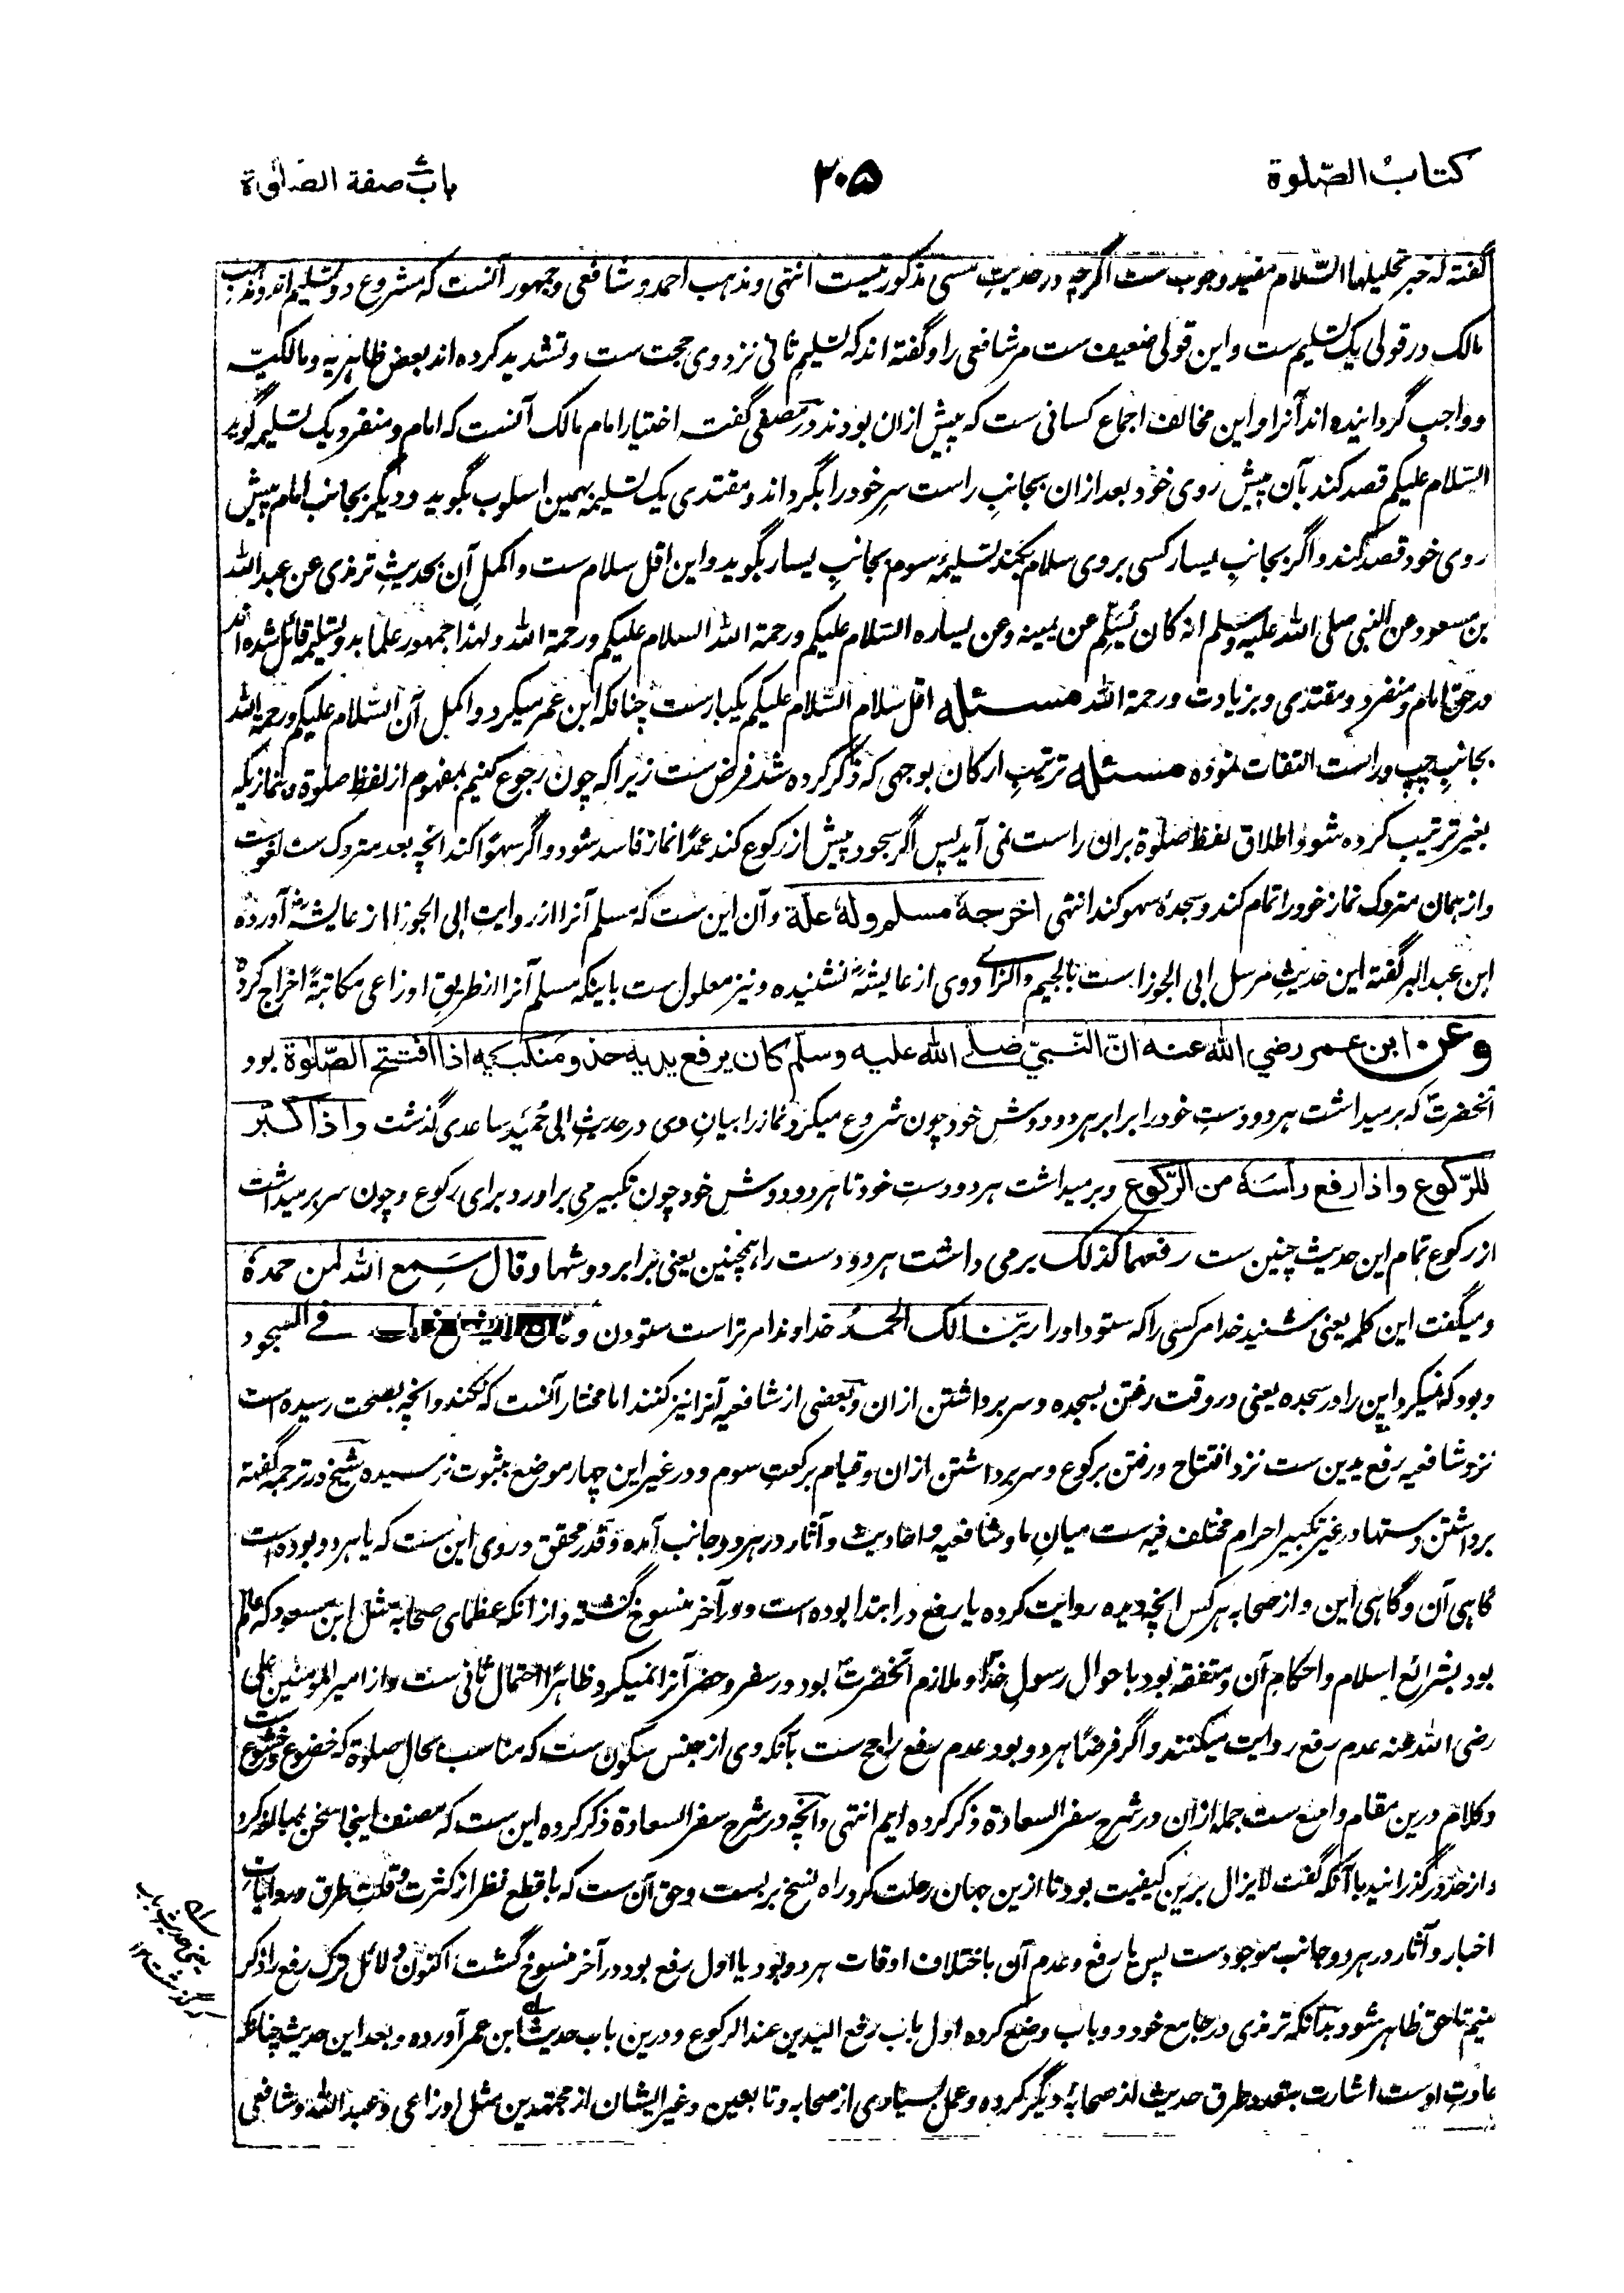 کتابُ الصّلوة
۲۰۵
بابُ صفة الصلوة
گفته که خبر تحلیلها السّلام مفید وجوب ست اگرچه در حدیثِ مسی مذکور نیست انتهی و مذهب احمد و شافعی و جمهور آنست که مشروع دو تسلیم اند و مذهب
مالک در قولی یک تسلیم ست و این قولی ضعیف ست مر شافعی را و گفته اند که تسلیمِ ثانی نزد وی حجت ست و تشدید کرده اند بعض ظاهریه و مالکیّه
و واجب گردانیده اند آنرا و این مخالف اجماع کسانی ست که پیش ازان بودند در مصفی گفته اختیار امام مالک آنست که امام و منفرد یک تسلیمه گوید
السّلام علیکم قصد کند بآن پیش روی خود بعد ازان بجانبِ راست سرِ خود را بگرداند و مقتدی یک تسلیمه بهمین اسلوب بگوید و دیگر بجانب امام پیش
روی خود قصد کند و اگر بجانبِ یسار کسی بروی سلام بکند تسلیمهٔ سوم بجانبِ یسار بگوید و این اقل سلام ست و اکملِ آن بحدیثِ ترمذی عن عبد الله
بن مسعود عن النبی صلی الله علیه وسلم انه کان یُسَلِّم عن یمینه و عن یساره السّلام علیکم و رحمة الله السلام علیکم و رحمة الله و لهذا جمهور علما بدو تسلیمه قائل شده اند
در حق امام و منفرد و مقتدی و بزیادت و رحمة الله مسئله اقل سلام السّلام علیکم یکبارست چنانکه ابن عمر میکرد و اکمل آن السّلام علیکم و رحمة الله
بجانبِ چپ و راست التفات نموده مسئله ترتیبِ ارکان بوجهی که ذکر کرده شد فرض ست زیرا که چون رجوع کنیم بمفهوم از لفظِ صلوة و نمازیکه
بغیر ترتیب کرده شود اطلاق لفظ صلوة بران راست نمی آید پس اگر سجود پیش از رکوع کند عمدًا نماز فاسد شود و اگر سهوًا کند انچه بعد متروک ست لغوست
و از همان متروک نماز خود را تمام کند و سجدهٔ سهو کند انتهی اخرجهٔ مسلم ولهٔ علّة و آن این ست که مسلم آنرا از روایتِ ابی الجوزا از عایشهؓ آورده
ابن عبد البر گفته این حدیثِ مرسل ابی الجوزا ست بالجیم والزاے و وی از عایشهؓ نشنیده و نیز معلول ست باینکه مسلم آنرا از طریقِ اوزاعی مکاتبةً اخراج کرده
وعن ابن عمر رضي الله عنه انّ النّبيّ صلے الله علیه وسلّم کان یرفع یدیه حذو منکبیه اذا افتتح الصّلوة بود
آنحضرتؐ که برمیداشت هر دو دستِ خود را برابر هر دو دوشِ خود چون شروع میکرد نماز را بیانِ وی در حدیثِ ابی حُمَید ساعدی گذشت واذا کبّر
للرّکوع واذا رفع رأسَهٔ من الرّکوع و برمیداشت هر دو دستِ خود تا هر دو دوشِ خود چون تکبیر می برآورد برای رکوع و چون سر برمیداشت
از رکوع تمام این حدیث چنین ست رفعهما کذلک برمی داشت هر دو دست را همچنین یعنی برابر دوشها وقال سَمِع الله لمن حمدهٔ
و میگفت این کلمه یعنی بشنید خدا مر کسی را که ستود او را ربّنا لک الحمدُ خداوندا مر تراست ستودن و فے السجود
و بود که نمیکرد این را در سجده یعنی در وقت رفتن بسجده و سر برداشتن ازان و بعضی از شافعیه آنرا نیز کنند اما مختار آنست که نکند و انچه بصحت رسیده است
نزد شافعیه رفع یدین ست نزد افتتاح و رفتن برکوع و سر برداشتن ازان و قیام برکعتِ سوم و در غیر این چهار موضع بثبوت نرسیده شیخ در ترجمه گفته
برداشتن دستها در غیر تکبیر احرام مختلف فیه ست میانِ ما و شافعیه و احادیث و آثار در هر دو جانب آمده و قدر محقق در وی این ست که یا هر دو بوده است
گاهی آن و گاهی این و از صحابه هر کس انچه دیده روایت کرده یا رفع در ابتدا بوده است و در آخر منسوخ گشته و از آنکه عظمای صحابه مثل ابن مسعود که عالم
بود بشرائع اسلام و احکامِ آن و متفقد بود باحوال رسولِ خداؐ و ملازم آنحضرتؐ بود در سفر و حضر آنرا نمیکرد ظاهرًا احتمال ثانی ست و از امیر المومنین علی
رضی الله عنه عدمِ رفع روایت میکنند و اگر فرضًا هر دو بود عدم رفع راجح ست بآنکه وی از جنس سکون ست که مناسب بحالِ صلوة که خضوع و خشوع ست
و کلام درین مقام واسع ست جمله ازان در شرحِ سفر السعادة ذکر کرده ایم انتهی و آنچه در شرحِ سفر السعادة ذکر کرده این ست که مصنف اینجا سخن بمبالغه کرد
و از حد در گذرانید با آنکه گفت لایزال برین کیفیت بود تا ازین جهان رحلت کرد راه نسخ بربست و حق آن ست که با قطع نظر از کثرت و قلتِ طرق و روایات
اخبار و آثار در هر دو جانب موجودست پس یا رفع و عدم آن باختلاف اوقات هر دو بود یا اول رفع بود در آخر منسوخ گشت اکنون دلائل ترک رفع را ذکر
کنیم تا حق ظاهر شود بدانکه ترمذی در جامع خود دو باب وضع کرده اول باب رفع الیدین عند الرکوع و درین باب حدیث ابن عمر آورده و بعد این حدیث چنانکه
عادتِ اوست اشارت بتعدد طرق حدیث از صحابهٔ دیگر کرده و عمل بسیاری از صحابه و تابعین و غیر ایشان از مجتهدین مثل اوزاعی و عبد الله و شافعی
یعنی حدیث
گذشت ۱۲